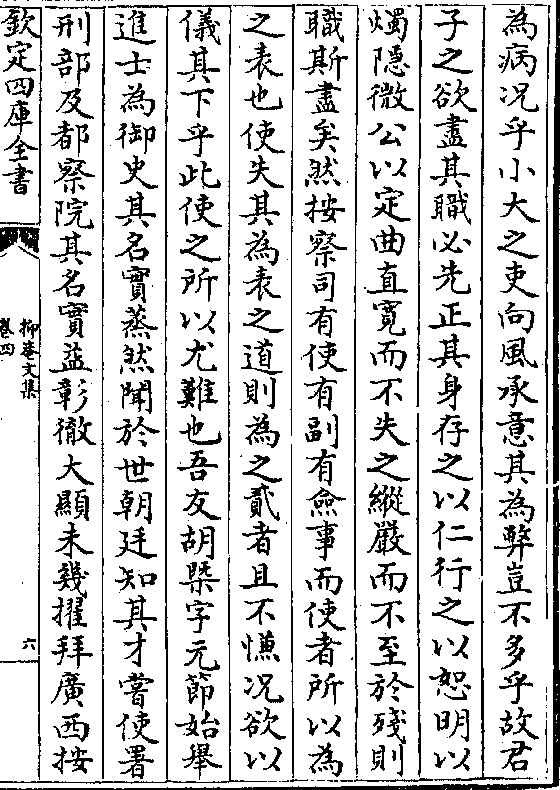 為病况乎小大之吏向風承意其為弊豈不多乎故君
子之欲盡其職必先正其身存之以仁行之以恕明以
燭隱微公以定曲直寛而不失之縱嚴而不至於殘則
職斯盡矣然按察司有使有副有僉事而使者所以為
之表也使失其為表之道則為之貳者且不慊况欲以
儀其下乎此使之所以尤難也吾友胡槩字元節始舉
進士為御史其名實蒸然聞於世朝廷知其才嘗使署
刑部及都察院其名實益彰徹大顯未幾擢拜廣西按
欽定四庫全書
抑菴文集
卷四
六